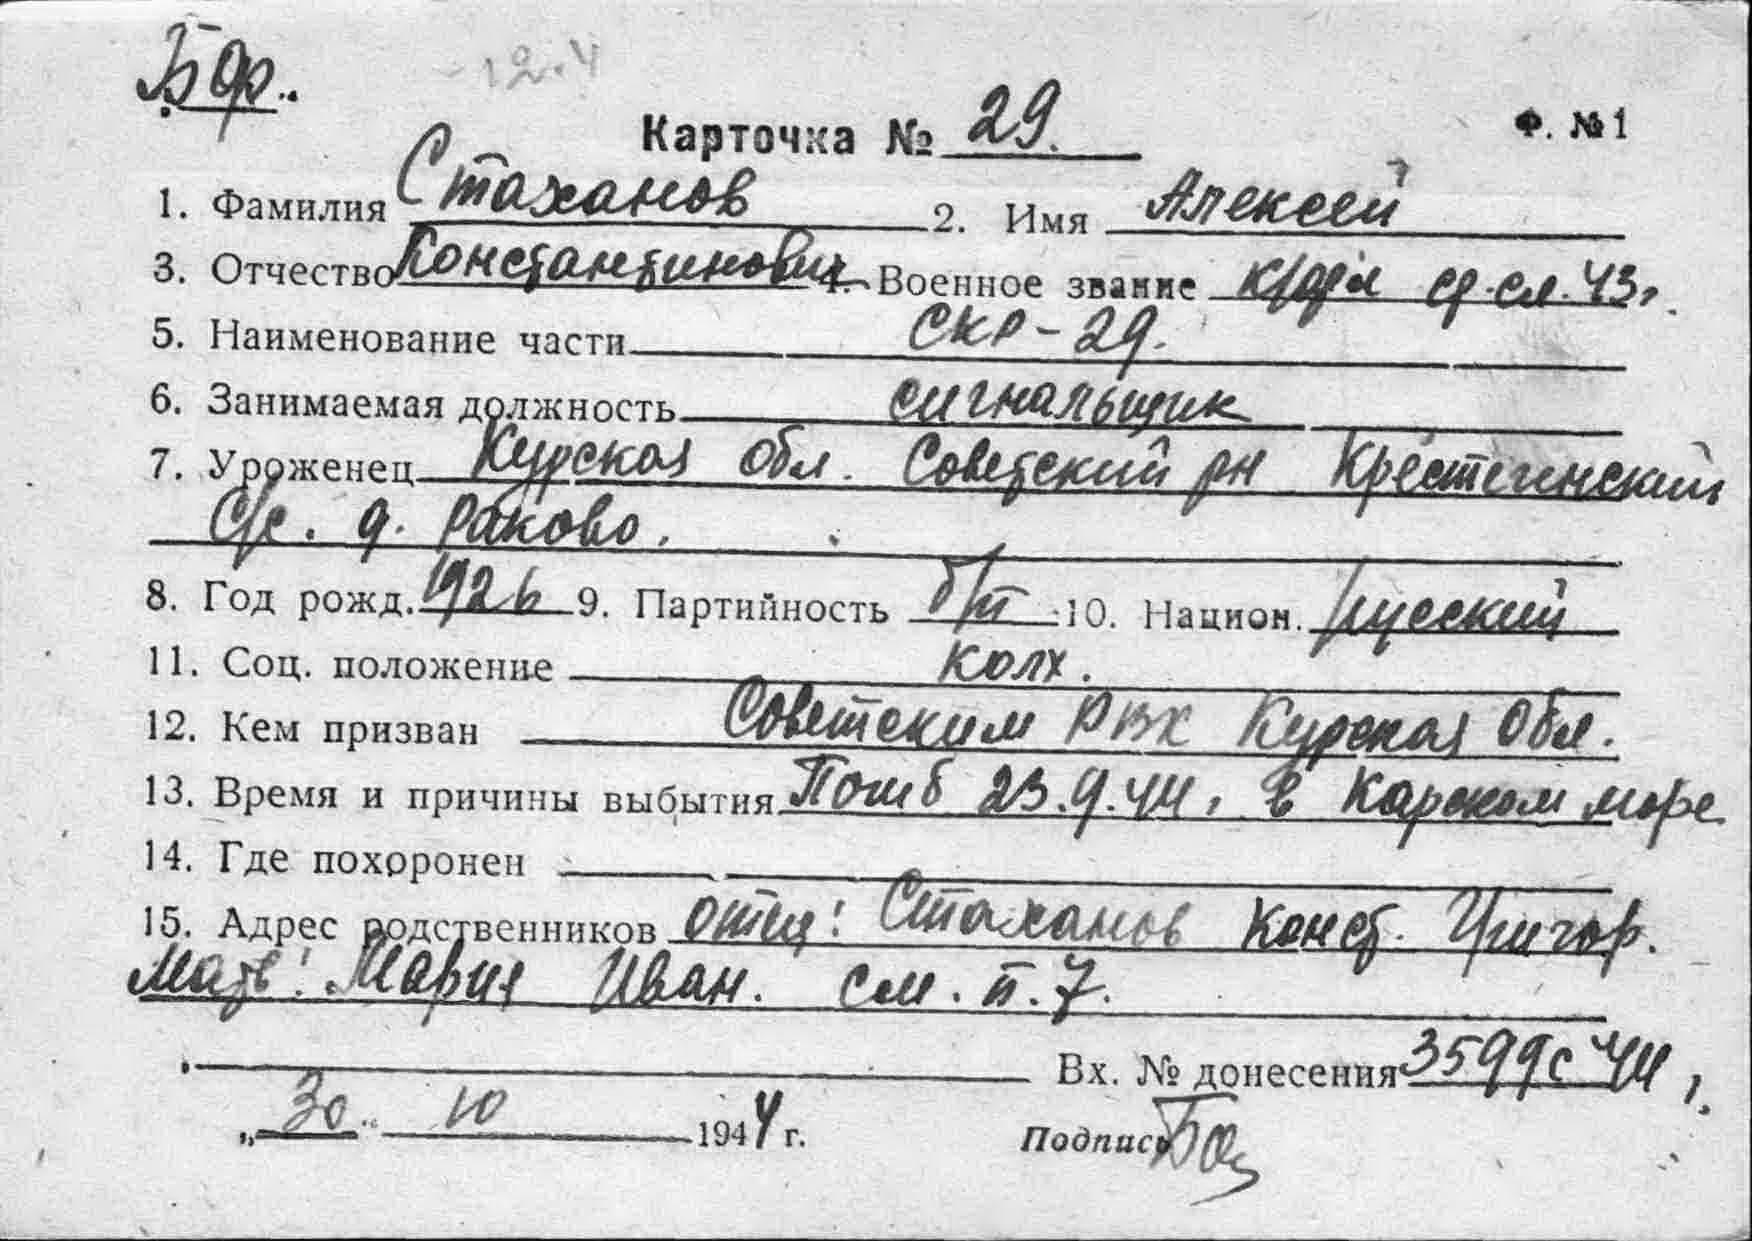 Бф.
12.4
Карточка № 29. Ф. №1
1. Фамилия Стаханов 2. Имя Алексей
3. Отчество Константинович 4. Военное звание к/фл ср.сл. 43г.
5. Наименование части СКР-29.
6. Занимаемая должность сигнальщик
7. Уроженец Курская обл. Советский рн Крестищенский
С/с. д. Раково.
8. Год рожд. 1926 9. Партийность б/п 10. Национ. русский
11. Соц. положение колх.
12. Кем призван Советским РВК Курская обл.
13. Время и причины выбытия Погиб 23.9.44г в Карском море
14. Где похоронен
15. Адрес родственников отец: Стаханов Конст. Григор.
Мать: Мария Иван. см. п. 7.
Вх. № донесения 3599с 44г.
„30" 10 1944 г. Подпись